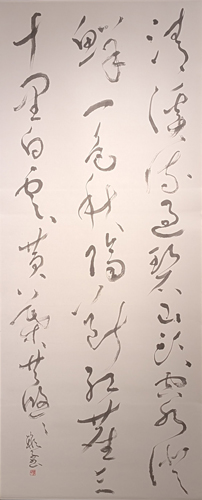 清溪流過碧山頭空水澄
鮮一色秋隔斷紅塵三
十里白雲黃葉共悠〻